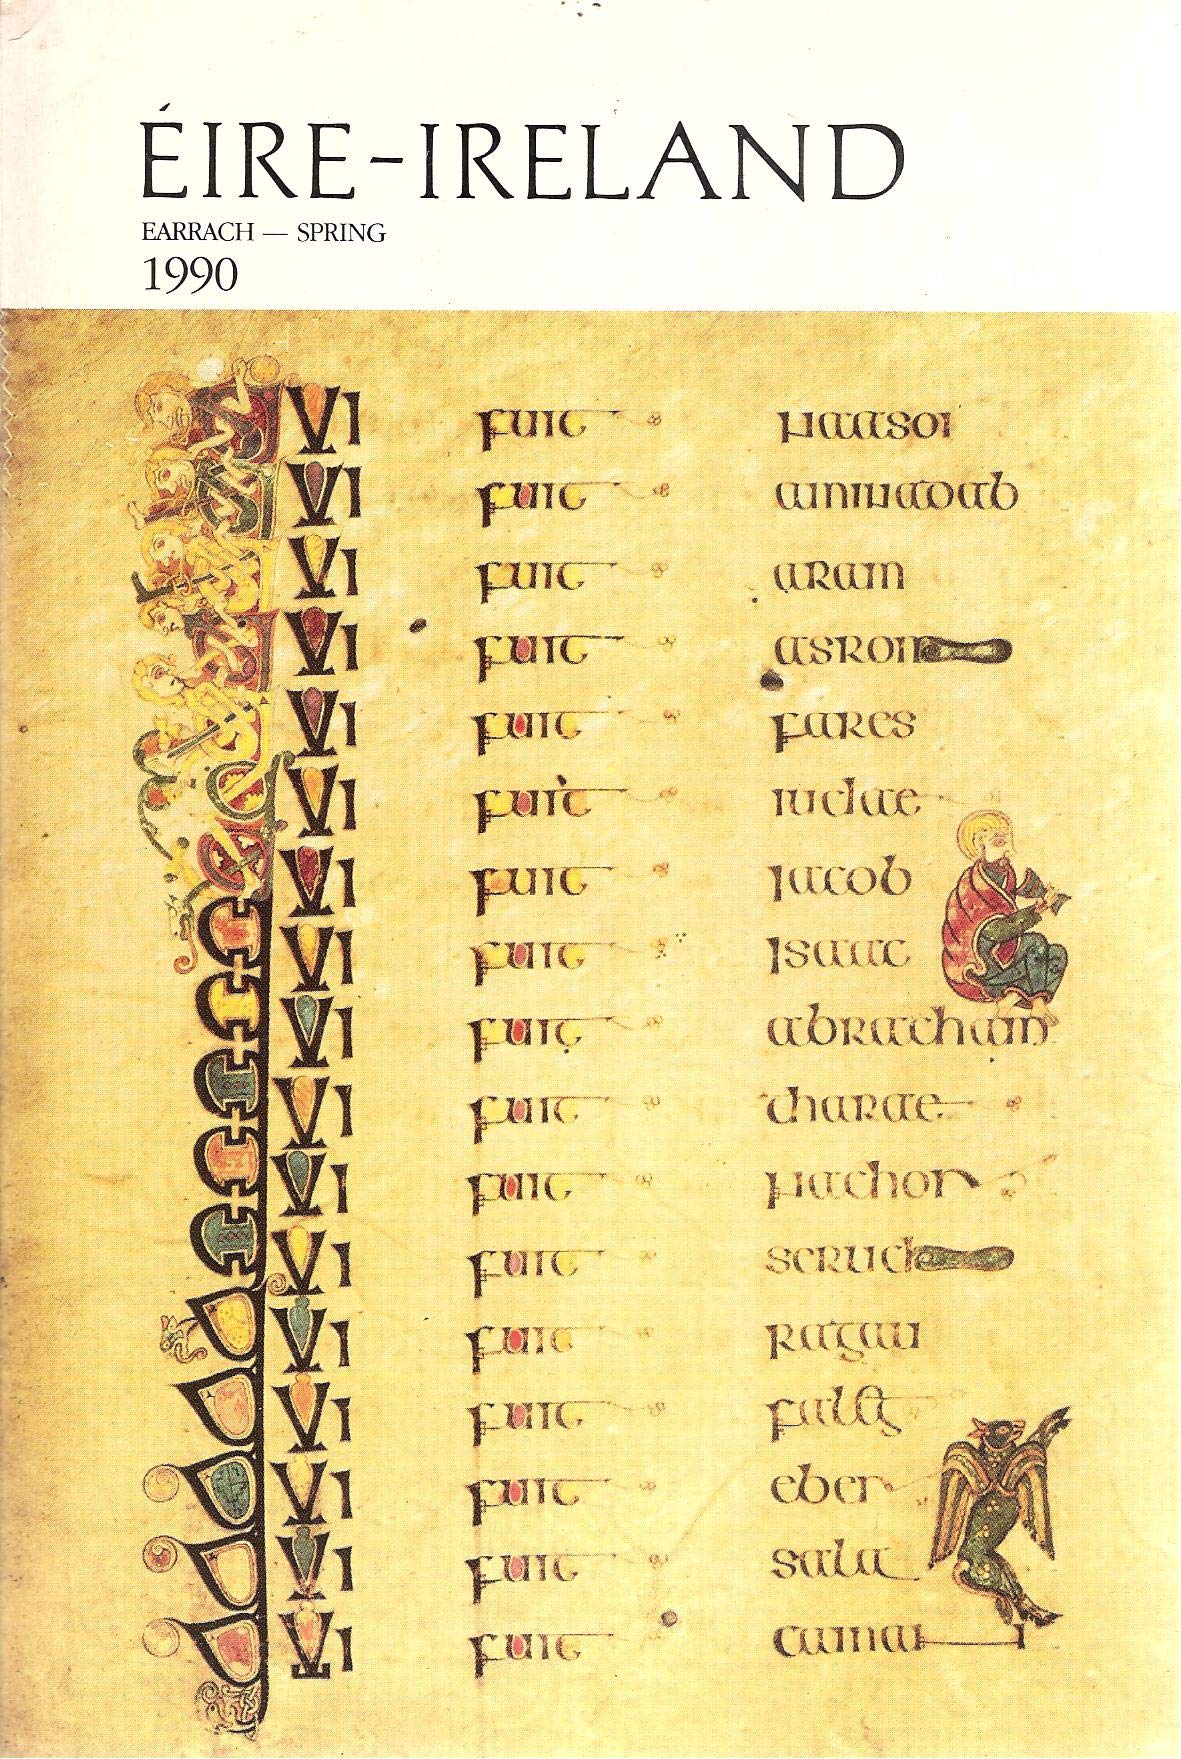 ÉIRE-IRELAND
EARRACH — SPRING
1990
QVI fuit naason
QVI fuit aminadab
QVI fuit aram
QVI fuit asrom
QVI fuit fares
QVI fuit iudae
QVI fuit iacob
QVI fuit isaac
QVI fuit abracham
QVI fuit tharae
QVI fuit nachor
QVI fuit seruch
QVI fuit ragau
QVI fuit faleg
QVI fuit eber
QVI fuit sala
QVI fuit cainan